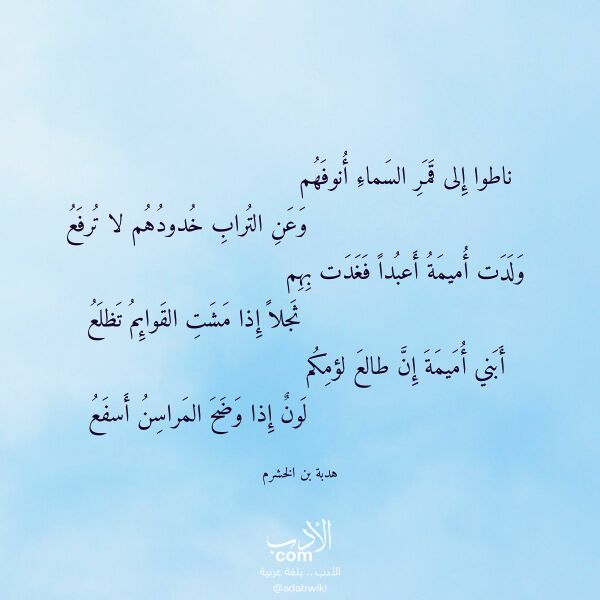 ناطوا إِلى قَمَرِ السَماءِ أُنوفَهُم
وَعَنِ التُرابِ خُدودُهُم لا تُرفَعُ
وَلَدَت أُميمَةُ أَعبُداً فَغَدَت بِهِم
ثَجلاً إِذا مَشَتِ القَوائِمُ تَظلَعُ
أَبَني أُمَيمَةَ إِنَّ طالعَ لؤمِكُم
لَونٌ إِذا وَضَحَ المَراسِنُ أَسفَعُ
هدبة بن الخشرم
الأدب
com
الأدب .. بلغة عربية
@adabwiki